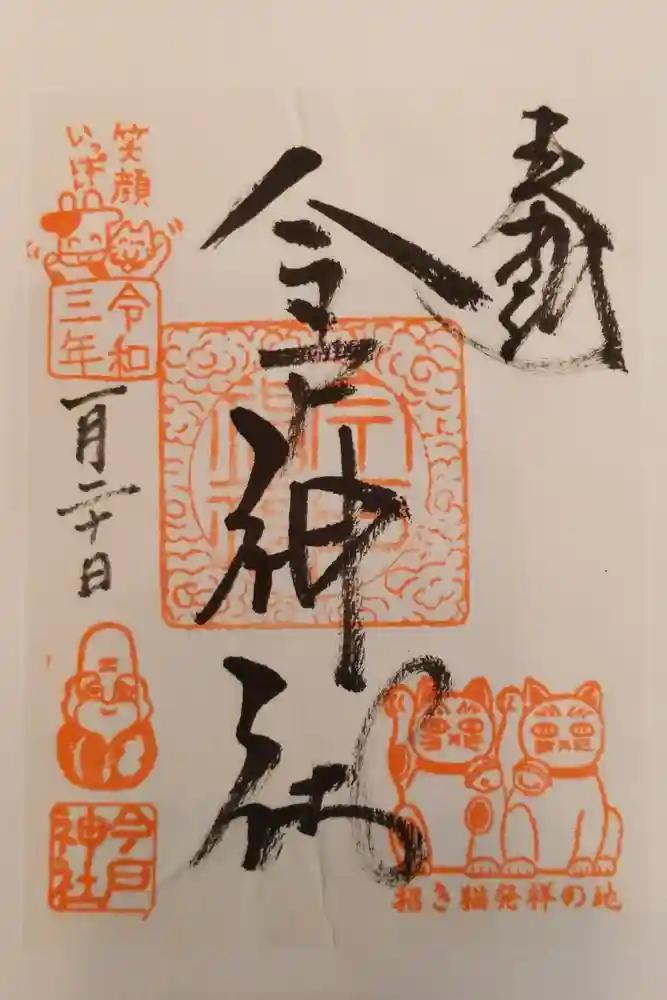 奉拝
今戸神社
招き猫発祥の地
笑顔
いっぱい
令和
三年
一月二十日
今戸
神社